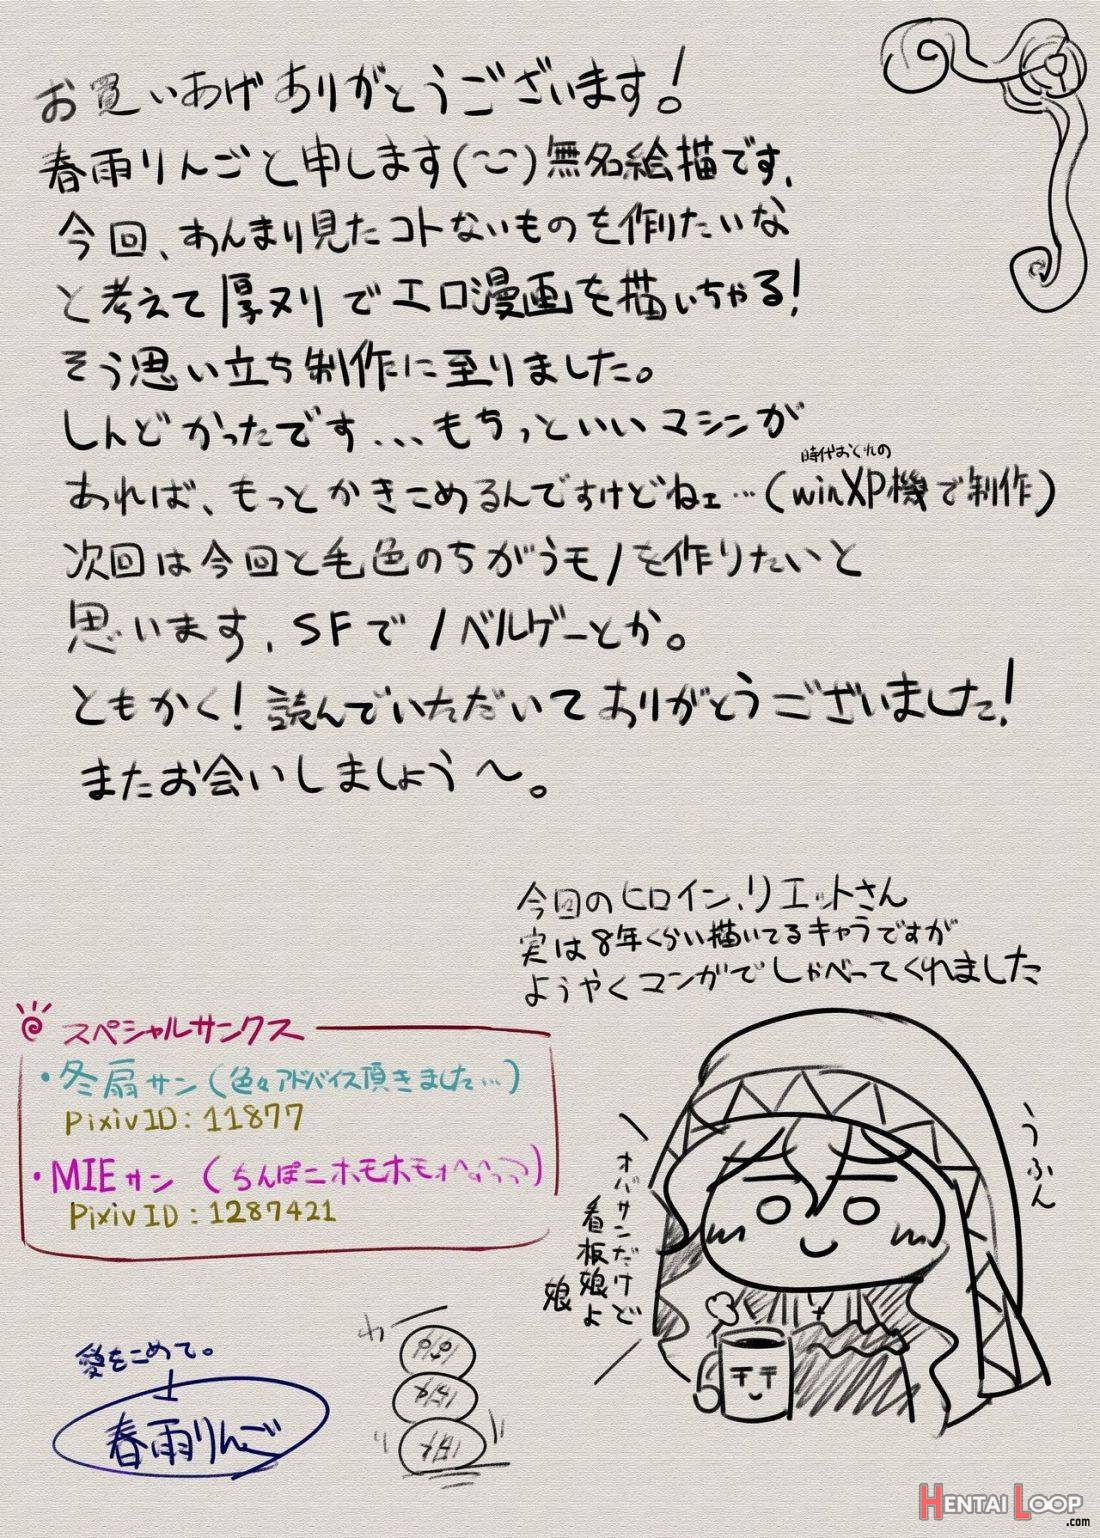 お買いあげありがとうございます!
春雨りんごと申します(~ー~)無名絵描です、
今回、あんまり見たコトないものを作りたいな
と考えて厚ヌリでエロ漫画を描いちゃる!
そう思い立ち制作に至りました。
しんどかったです...もちっといいマシンが
時代おくれの
あれば、もっとかきこめるんですけどねェ…(winXP機で制作)
次回は今回と毛色のちがうモノを作りたいと
思います、SFでノベルゲーとか。
ともかく!読んでいただいてありがとうございました!
またお会いしましょう〜。
今回のヒロイン、リエットさん
実は8年くらい描いてるキャラですが
ようやくマンガでしゃべってくれました
スペシャルサンクス
・冬扇サン(色々アドバイス頂きました…)
PixivID:11877
・MIEサン(ちんぽニホモホモ
PixivID:1287421
うふん
オバサンだけど
看板娘よ
娘
愛をこめて。
春雨りんご
HENTAI LOOP
.com